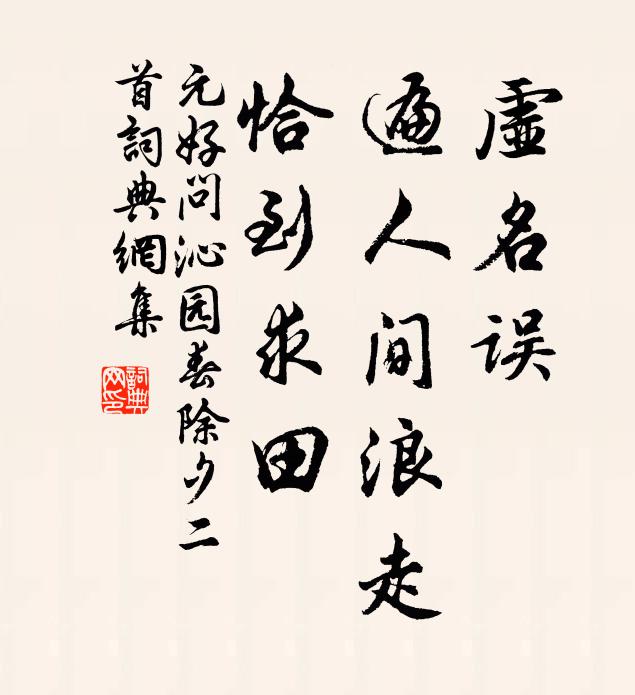 虛名误
遍人间浪走
恰到求田
元好问沁园春除夕二
首詞典網集
詞典网印